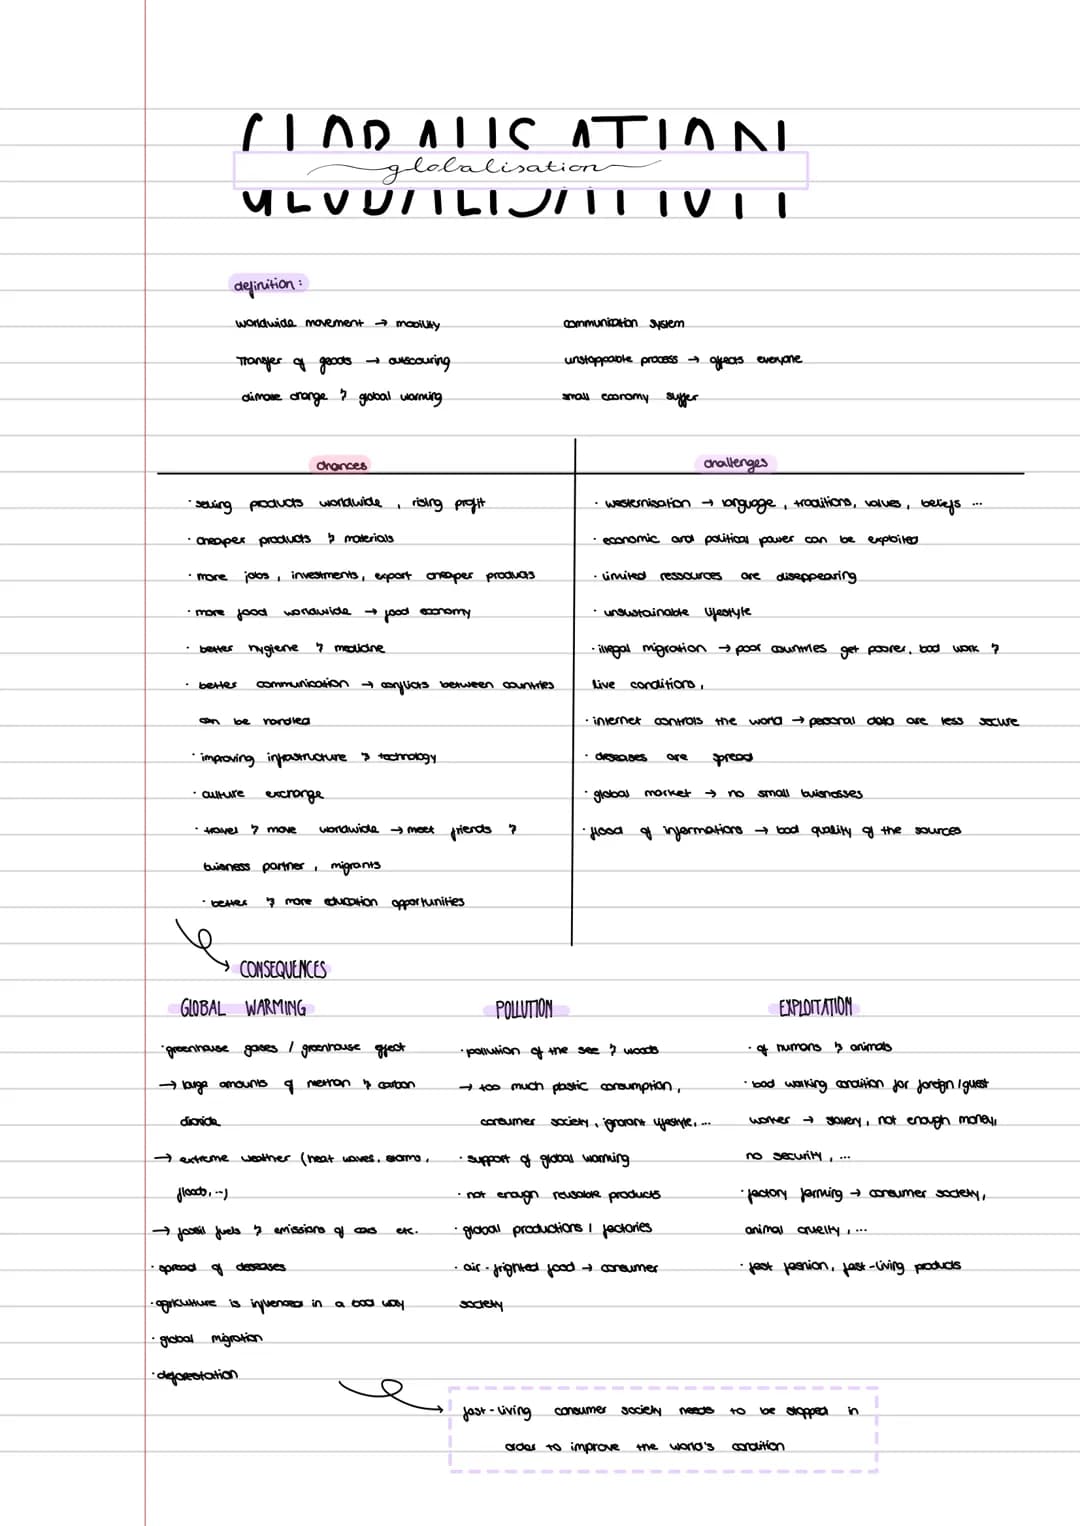 GLOBALISATION
globalisation
definition:
worldwide movement → mobility
Transfer of goods → outscouring
climate change & global warming
communication system
unstoppable process → affects everyone
small economy suffer
chances
· selling products worldwide, rising profit
· cheaper products & materials
· more jobs, investments, export cheaper products
· more food worldwide → food economy
· better hygiene & medicine
· better communication → conflicts between countries
can be handled
· improving infrastructure & technology
· culture exchange
· travel & move worldwide → meet friends &
buisness partner, migrants
· better & more education opportunities
challenges
· westernisation → language, traditions, values, beliefs ...
· economic and political power can be exploited
· limited ressources are diseppearing
· unsustainable lifestyle
· illegal migration → poor countries get poorer, bad work &
live conditions,
· internet controls the world → personal data are less secure
· deseases are spread
· global market → no small buisnesses
· flood of informations → bad quality of the sources
CONSEQUENCES
GLOBAL WARMING
· greenhouse gases / greenhouse effect
→ large amounts of methan & carbon
dioxide
→ extreme weather (heat waves, storms,
floods, ...)
→ fossil fuels & emissions of cars etc.
· spread of deseases
· agriculture is influenced in a bad way
· global migration
· deforestation
POLLUTION
· pollution of the see & woods
→ too much plastic consumption,
consumer society, ignorant lifestyle, ...
· support of global warming
· not enough reusable products
· global productions / factories
· air-frighted food → consumer
society
EXPLOITATION
· of humans & animals
· bad working condition for foreign / guest
worker → slavery, not enough money,
no security, ...
· factory farming → consumer society,
animal cruelty, ...
· fast fashion, fast-living products
fast-living consumer society needs to be stopped in
order to improve the world's condition